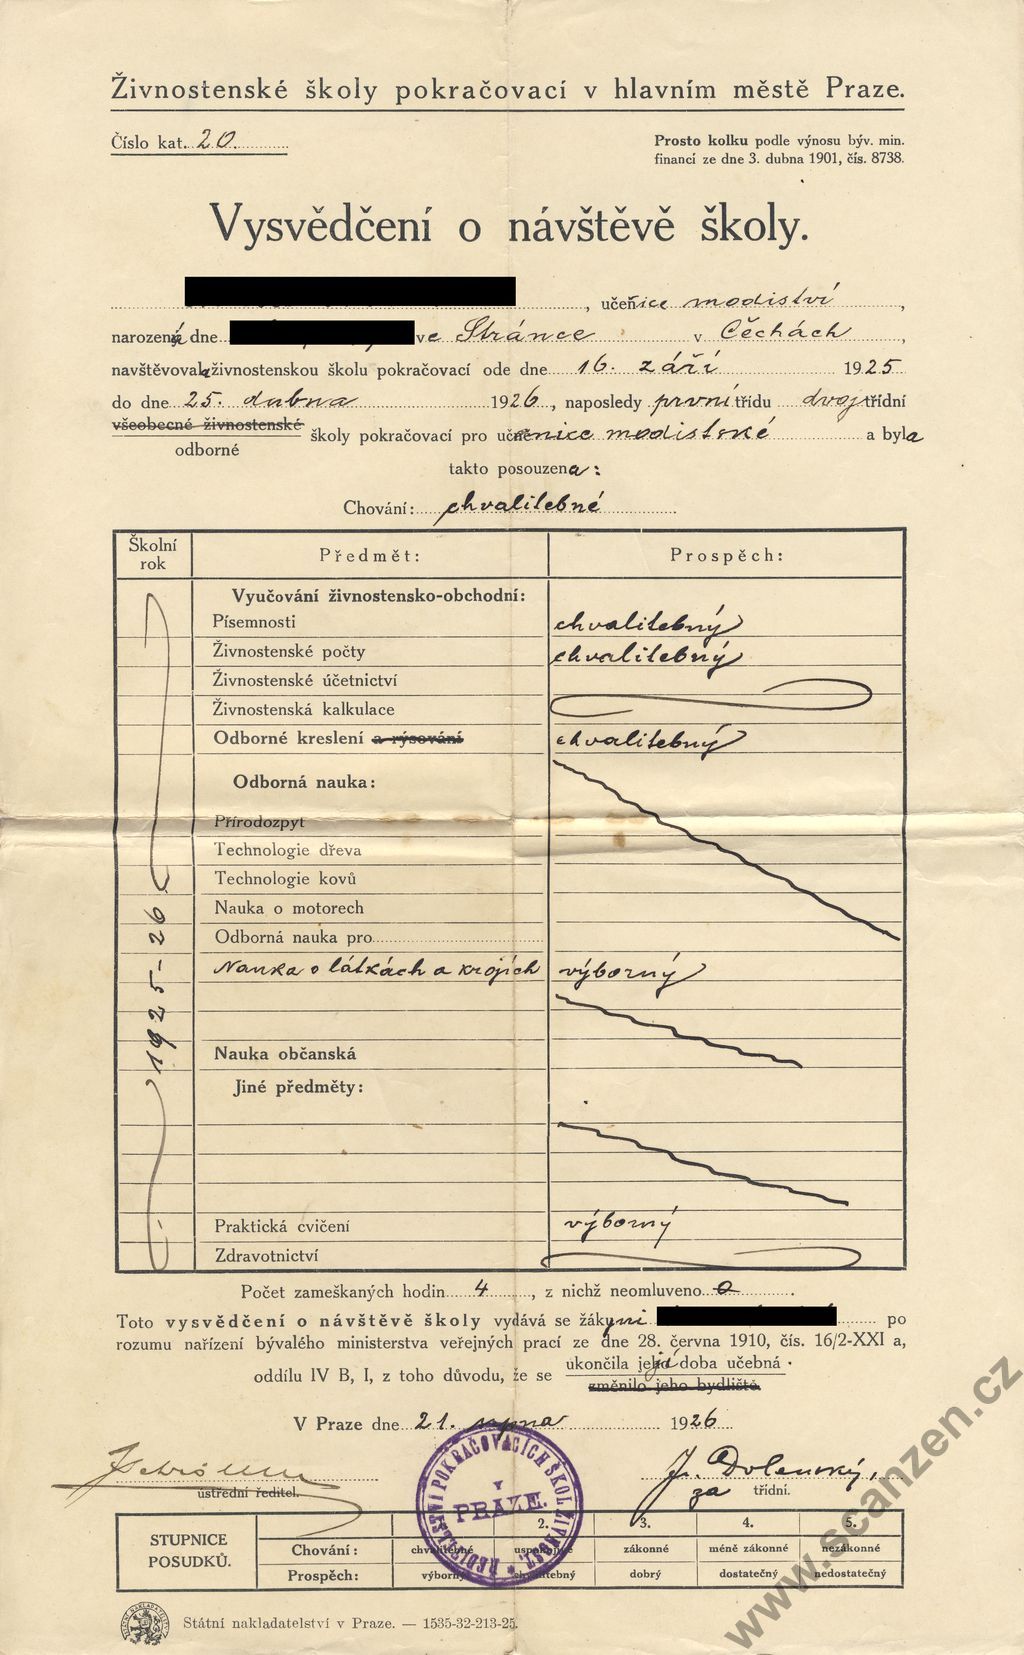 Živnostenské školy pokračovací v hlavním městě Praze.
Číslo kat. 20.
Prosto kolku podle výnosu býv. min.
financí ze dne 3. dubna 1901, čís. 8738.
Vysvědčení o návštěvě školy.
, učenice modiství,
narozená dne ve Stránce v Čěchách,
navštěvovala živnostenskou školu pokračovací ode dne 16. září 1925
do dne 25. dubna 1926, naposledy první třídu dvojtřídní
všeobecné živnostenské
odborné
školy pokračovací pro učnenice modistské a byla
takto posouzena:
Chování: chvalitebné
Školní rok
Předmět:
Prospěch:
Vyučování živnostensko-obchodní:
Písemnosti chvalitebný
Živnostenské počty chvalitebný
Živnostenské účetnictví
Živnostenská kalkulace
Odborné kreslení a rýsování chvalitebný
Odborná nauka:
Přírodozpyt
Technologie dřeva
Technologie kovů
Nauka o motorech
Odborná nauka pro
Nauka o látkách a krojích výborný
1925-26
Nauka občanská
Jiné předměty:
Praktická cvičení výborný
Zdravotnictví
Počet zameškaných hodin 4, z nichž neomluveno 0.
Toto vysvědčení o návštěvě školy vydává se žákyni po
rozumu nařízení bývalého ministerstva veřejných prací ze dne 28. června 1910, čís. 16/2-XXI a,
oddílu IV B, I, z toho důvodu, že se
ukončila její doba učebná.
změnilo jeho bydliště.
V Praze dne 21. srpna 1926
ústřední ředitel.
J. Dolenský,
za třídní.
ŘEDITELSTVÍ POKRAČOVACÍCH ŠKOL ŽIVNOST.
V
PRAZE.
STUPNICE POSUDKŮ.
2. 3. 4. 5.
Chování: chvalitebné uspokojivé zákonné méně zákonné nezákonné
Prospěch: výborný chvalitebný dobrý dostatečný nedostatečný
Státní nakladatelství v Praze. — 1535-32-213-25.
www.scanzen.cz